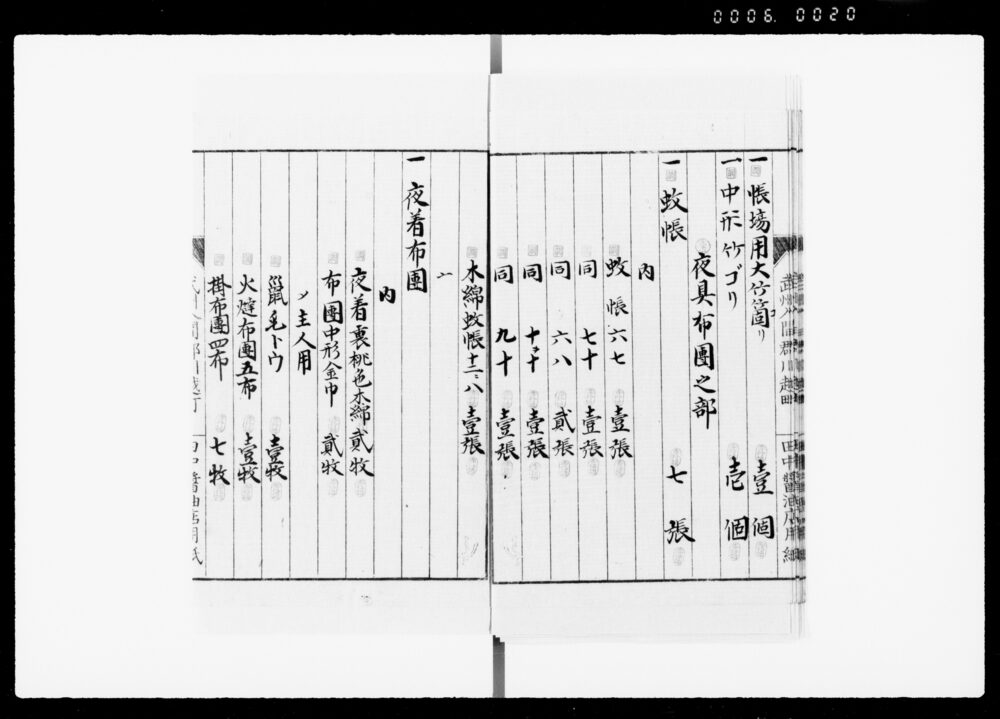 0006. 0020
一 帳場用大竹箇リ 壹個
一 中形竹ゴリ 壱個
夜具布團之部
一 蚊帳 七張
内
蚊帳 六七 壹張
同 七十 壹張
同 六八 貳張
同 十十 壹張
同 九十 壹張
木綿蚊帳 八 壹張
一 夜着布團
内
夜着裏桃色木綿 貳牧
布團中形金巾 貳牧
〆主人用
毛トウ 壹牧
火燵布團五布 壹牧
掛布團四布 七牧
田中醤油店用紙